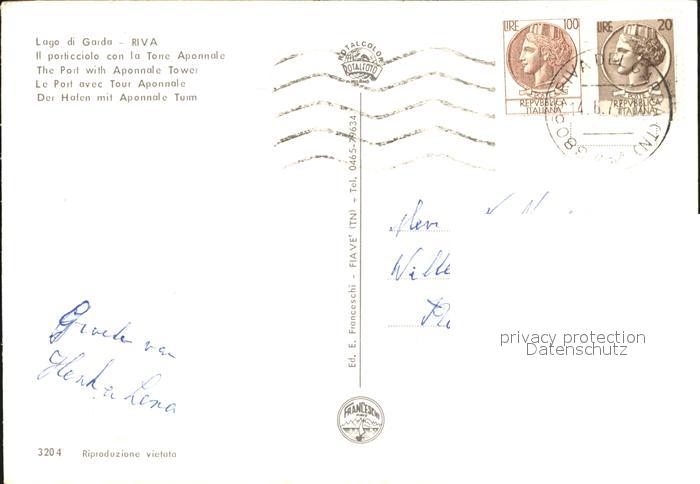 Lago di Garda - RIVA
Il porticciolo con la Torre Aponnale
The Port with Aponnale Tower
Le Port avec Tour Aponnale
Der Hafen mit Aponnale Turm
ROTALCOLOR
ROTALFOTO
LIRE 100
REPVBBLICA
ITALIANA
LIRE 20
REPVBBLICA
ITALIANA
Ed. E. Franceschi - FIAVE' (TN) - Tel. 0465-79634
Groeten van
Henk en Lena
privacy protection
Datenschutz
FRANCESCHI
3204 Riproduzione vietata